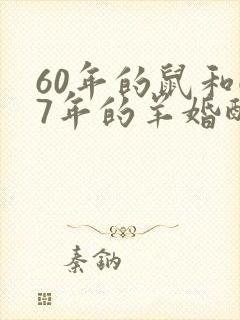 60年的鼠和
7年的羊婚
秦钠